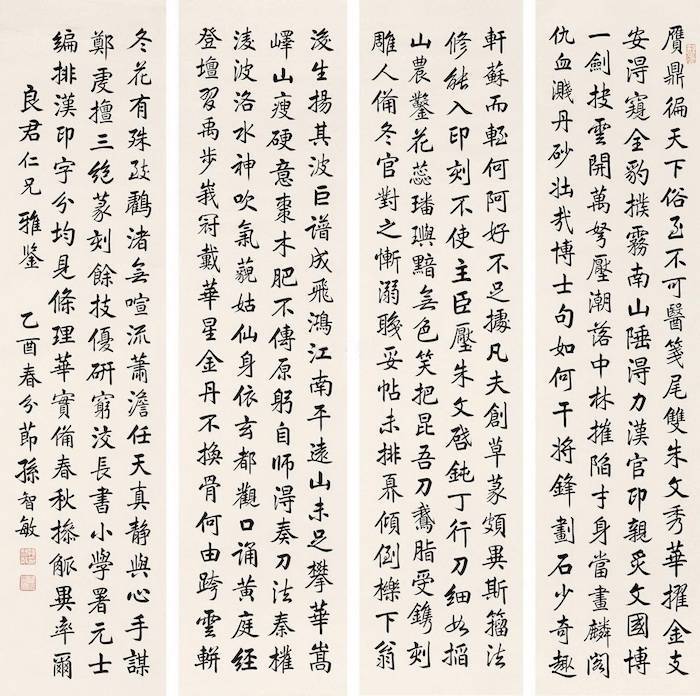 贋鼎徧天下俗面不可醫箋尾雙朱文秀華擢金支
安得窺全豹撲霧南山陲得力漢官印親炙文國博
一劍披雲開萬弩壓潮落中林摧陷才身當畫麟閣
仇血濺丹砂壯哉博士句如何干將鋒劃石少奇趣
軒蘇而輊何阿好不足據凡夫創草篆頗異斯籀法
修能入印刻不使主臣壓朱文啓鈍丁行刀細如掐
山農鑿花蕊璠璵黯無色笑把昆吾刀鵞脂受鐫刻
雕人備冬官對之慚溺職妥帖未排奡傾倒櫟下翁
浚生揚其波巨譜成飛鴻江南平遠山未足攀華嵩
嶧山瘦硬意棗木肥不傳原躬自師得奏刀法秦權
淩波洛水神吹氣藐姑仙身依玄都觀口誦黃庭經
登壇習禹步峩冠戴華星金丹不換骨何由跨雲軿
冬花有殊致鸛渚無喧流蕭澹任天真靜與心手謀
鄭虔擅三絶篆刻餘技優研窮洨長書小學署元士
編排漢印字分均見條理華實備春秋搽觚畢率爾
良君仁兄雅鉴 乙酉春分節孫智敏